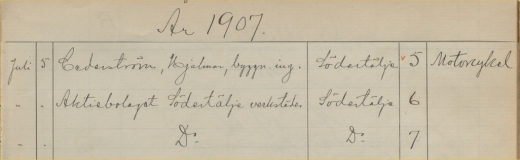 År 1907.
Juli 5 Cederström, Hjalmar, byggn. ing. Södertälje 5 Motorcykel
" . Aktiebolaget Södertälje verkstäder Södertälje 6
" . Do Do 7